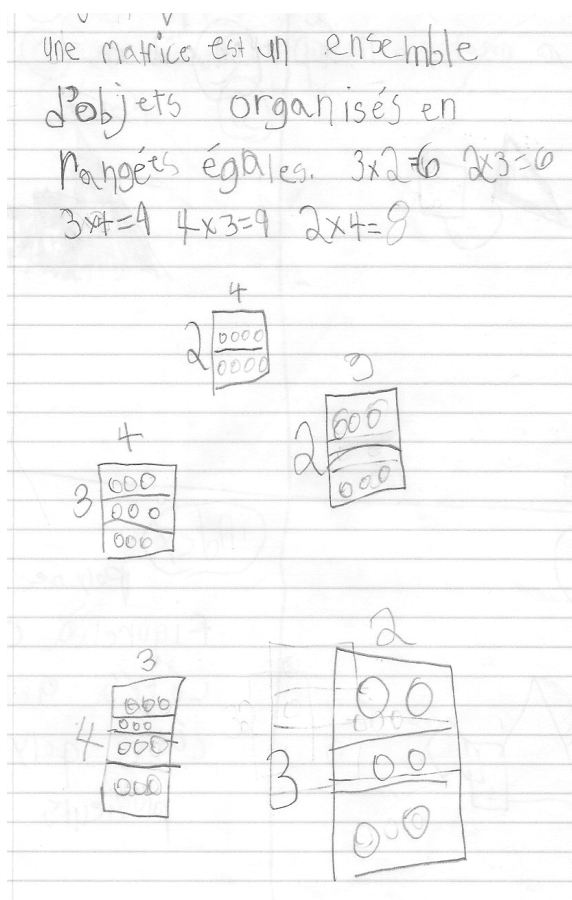 une matrice est un ensemble
d'objets organisés en
rangées égales. 3x2=6 2x3=6
3x4=9 4x3=9 2x4=8
4
2
3
2
4
3
3
4
2
3